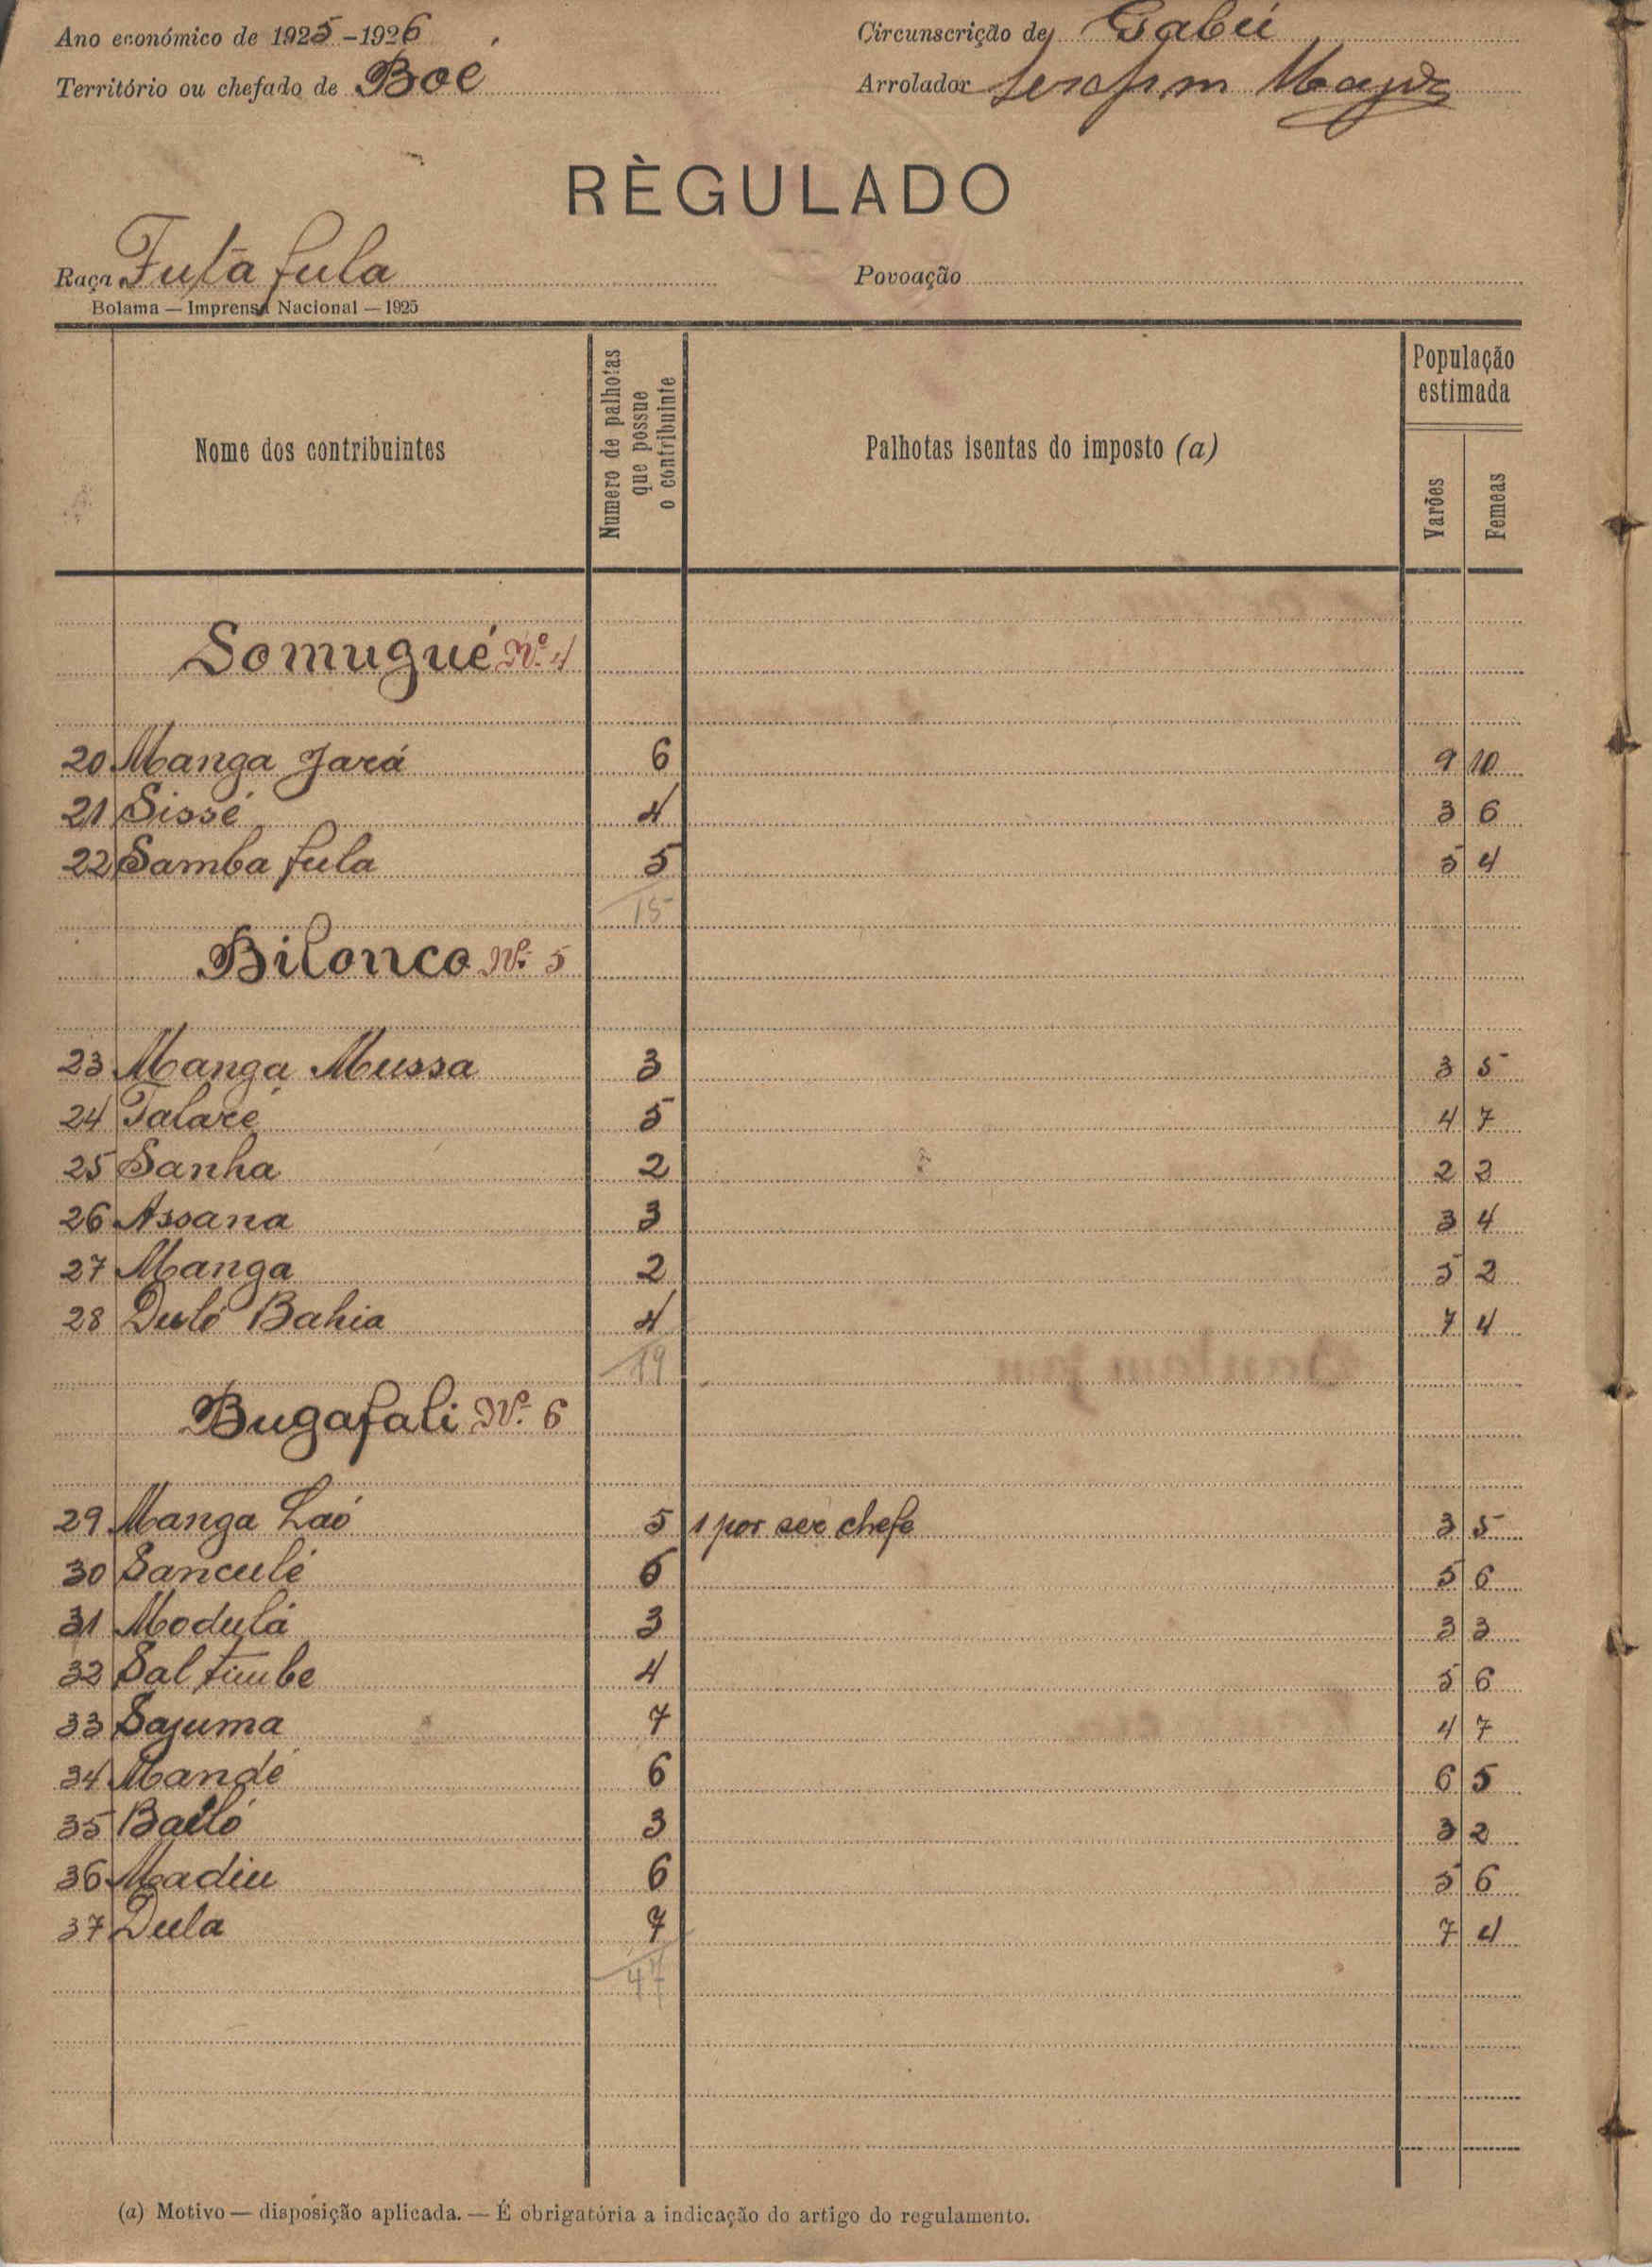 Ano económico de 1925-1926
Circunscrição de Gabú
Território ou chefado de Boé
Arrolador Serafim
RÈGULADO
Raça Futa fula
Povoação
Bolama — Imprensa Nacional — 1925
Nome dos contribuintes
Numero de palhotas que possue o contribuinte
Palhotas isentas do imposto (a)
População estimada
Varões
Femeas
Somugué Nº 4
20 Manga Jará 6 9 10
21 Sissé 4 3 6
22 Samba fula 5 5 4
15
Bilonco Nº 5
23 Manga Mussa 3 3 5
24 Talaré 5 4 7
25 Sanha 2 2 3
26 Assana 3 3 4
27 Manga 2 5 2
28 Duló Bahia 4 7 4
19
Bugafali Nº 6
29 Manga Laó 5 1 por ser chefe 3 5
30 Sanculé 6 5 6
31 Modulá 3 3 3
32 Sal timbe 4 5 6
33 Sajuma 7 4 7
34 Mandé 6 6 5
35 Bailó 3 3 2
36 Madiu 6 5 6
37 Dula 7 7 4
47
(a) Motivo — disposição aplicada. — É obrigatória a indicação do artigo do regulamento.